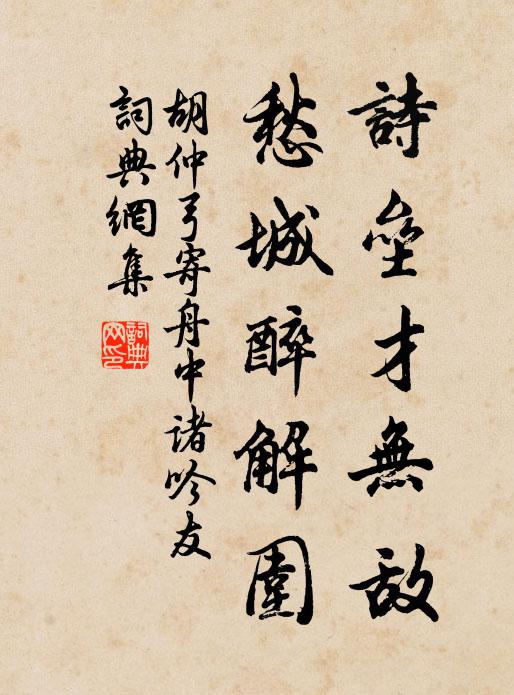 詩壘才無敌
愁城醉解圍
胡仲弓寄舟中诸吟友
詞典網集
詞典网印